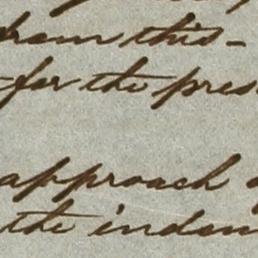 from this-
for the pres
approach
the indom